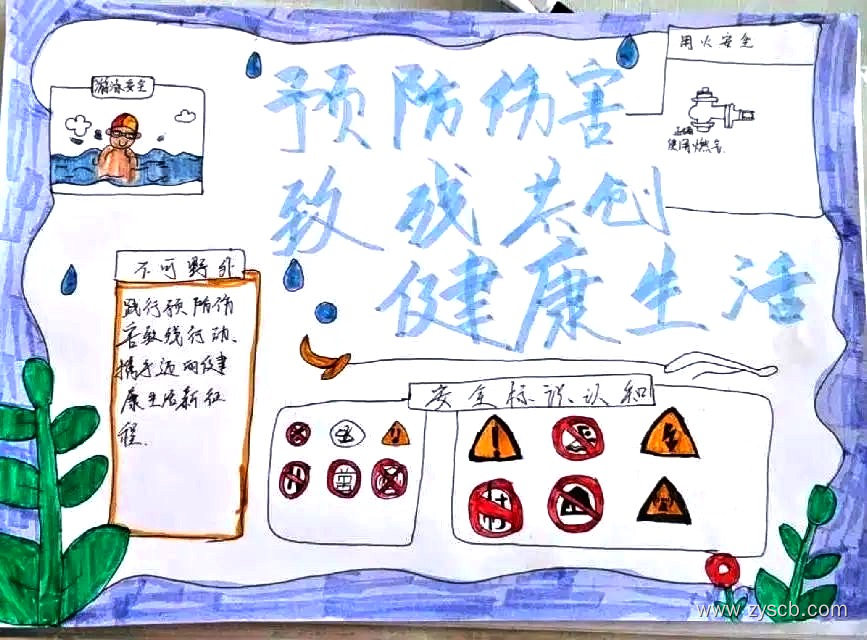 预防伤害
致线共创
健康生活
游泳安全
用火安全
使用燃气
不可野外
践行预防伤
害致线行动、
携手迈向健
康生活新征
程.
安全标识认知
www.zyscb.com